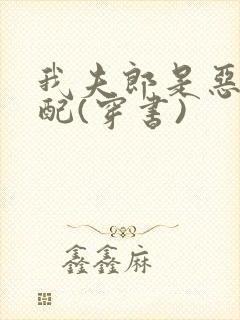 我夫郎是恶
配(穿书)
鑫鑫麻